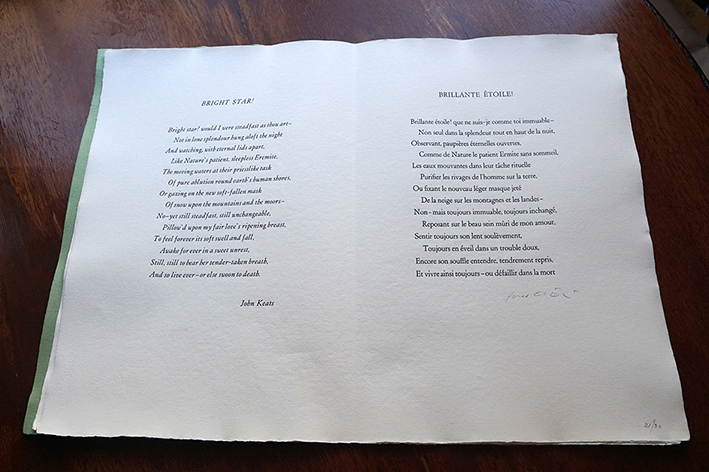 BRIGHT STAR!
Bright star! would I were steadfast as thou art–
Not in lone splendour hung aloft the night
And watching, with eternal lids apart,
Like Nature's patient, sleepless Eremite,
The moving waters at their priestlike task
Of pure ablution round earth's human shores,
Or gazing on the new soft-fallen mask
Of snow upon the mountains and the moors–
No–yet still steadfast, still unchangeable,
Pillow'd upon my fair love's ripening breast,
To feel forever its soft swell and fall,
Awake for ever in a sweet unrest,
Still, still to hear her tender-taken breath,
And so live ever–or else swoon to death.
John Keats
BRILLANTE ÉTOILE!
Brillante étoile! que ne suis-je comme toi immuable–
Non seul dans la splendeur tout en haut de la nuit,
Observant, paupières éternelles ouvertes,
Comme de Nature le patient Ermite sans sommeil,
Les eaux mouvantes dans leur tâche rituelle
Purifier les rivages de l'homme sur la terre,
Ou fixant le nouveau léger masque jeté
De la neige sur les montagnes et les landes–
Non–mais toujours immuable, toujours inchangé,
Reposant sur le beau sein mûri de mon amour,
Sentir toujours son lent soulèvement,
Toujours en éveil dans un trouble doux,
Encore son souffle entendre, tendrement repris,
Et vivre ainsi toujours–ou défaillir dans la mort